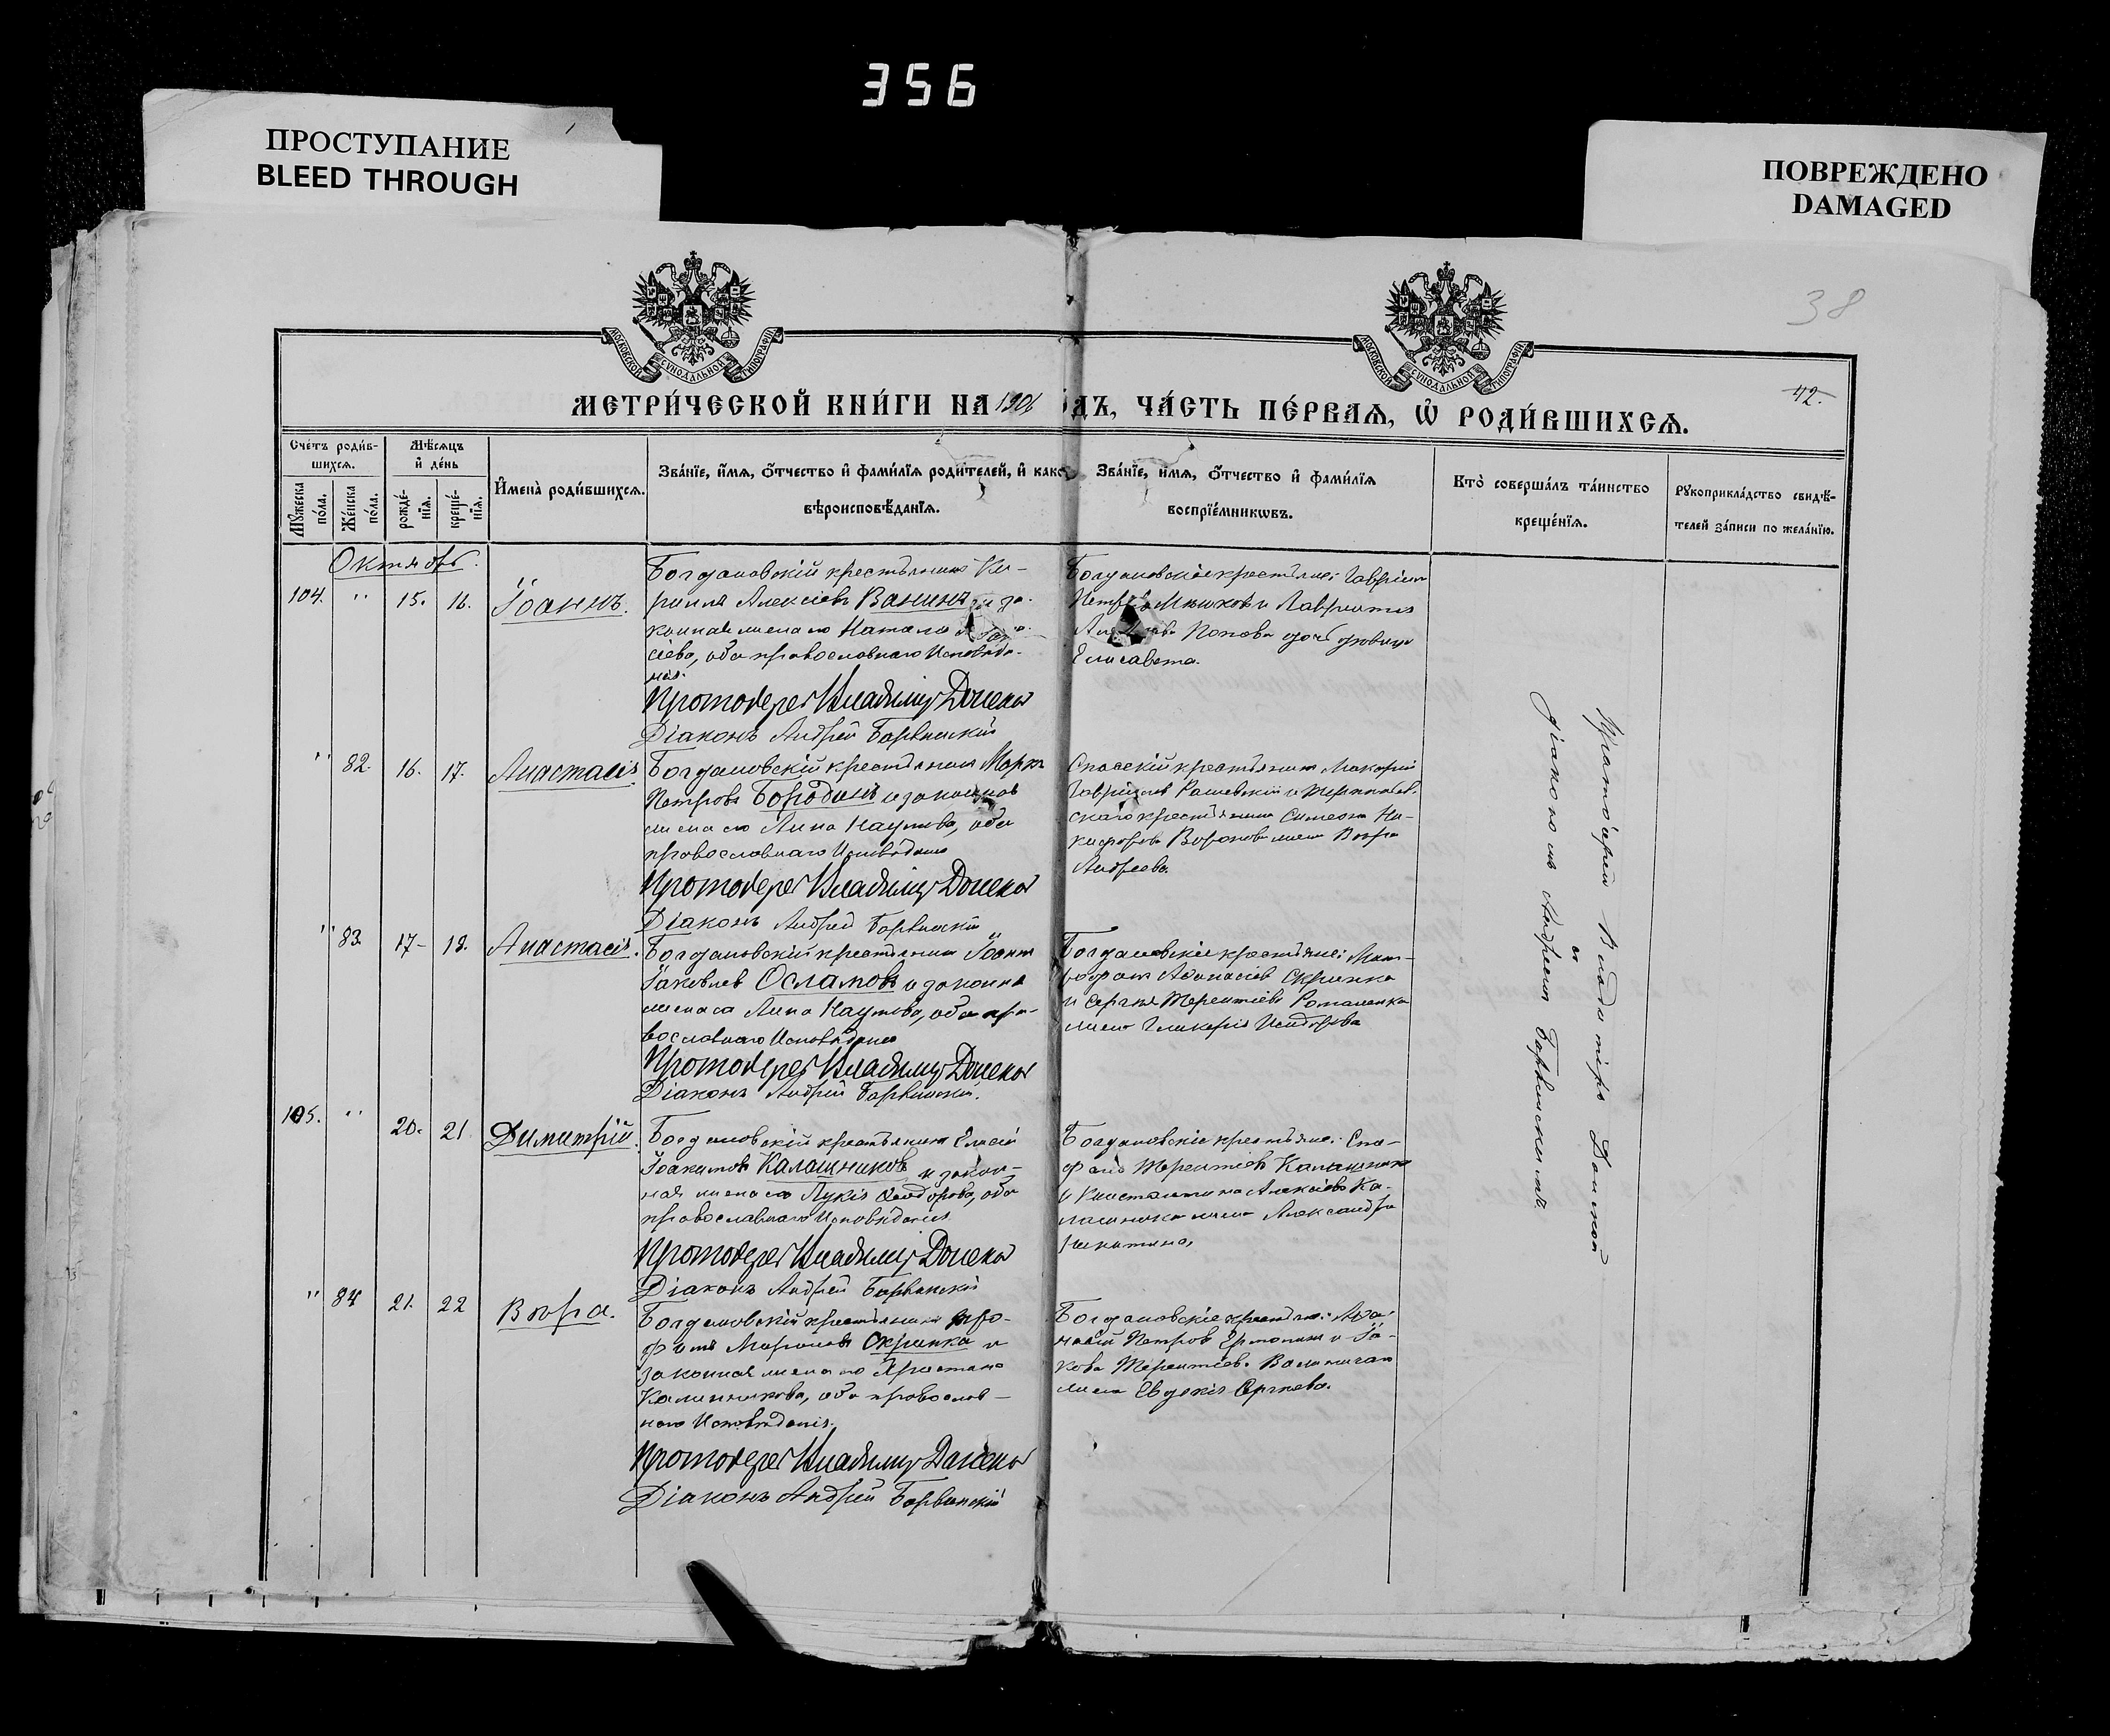 356
ПРОСТУПАНИЕ
BLEED THROUGH
ПОВРЕЖДЕНО
DAMAGED
38
МОСКОВСКОЙ СѴНОДАЛЬНОЙ ТИПОГРАФІИ
МОСКОВСКОЙ СѴНОДАЛЬНОЙ ТИПОГРАФІИ
42.
МЕТРИ́ЧЕСКОЙ КНИ́ГИ НА 1906 ДЪ, ЧА́СТЬ ПЕ́РВАЯ, Ѿ РОДИ́ВШИХСЯ.
Сче́тъ роди́в-
шихся.
Мѣ́сяцъ
и҆ де́нь
Мꙋ́жеска по́ла.
Же́нска по́ла.
рожде́-
нїя.
креще́-
нїя.
И҆мена̀ роди́вшихся.
Зва́нїе, и҆́мя, ѻ҆́тчество и҆ фами́лїя роди́телей, и҆ како
вѣроисповѣ́данїя.
Зва́нїе, и҆́мя, ѻ҆́тчество и҆ фами́лїя
воспрїе́мникѡвъ.
Кто̀ соверша́лъ та́инство
креще́нїя.
Рꙋкоприкла́дство свидѣ́-
телей за́писи по жела́нїю.
Октябрь.
104. " 15. 16. Іоаннъ.
Богдановскій крестьянинъ Ки-
риллъ Алексіевъ Ванинъ и за-
конная жена его Наталія
сіева, оба православнаго Исповѣда-
нія.
Протоіерей Владиміръ Донской
Діаконъ Андрей Барвинскій
Богдановскіе крестьяне: Гавріилъ
Мишковъ и Лаврентія
Попова дочь дѣвица
Елисавета.
" 82. 16. 17. Анастасія
Богдановскій крестьянинъ Маркъ
Петровъ Бородинъ и законная
жена его Анна Наумова, оба
православнаго Исповѣданія
Протоіерей Владиміръ Донской
Діаконъ Андрей Барвинскій
Спасскій крестьянинъ Макарій
Гавріиловъ Рашевскій и
скаго крестьянина Симеона Ни-
кифорова Воронова жена Вѣра
Андреева.
" 83. 17- 18. Анастасія.
Богдановскій крестьянинъ Іоаннъ
Іаковлевъ Осламовъ и законная
жена его Анна Наумова, оба пра-
вославнаго Исповѣданія
Протоіерей Владиміръ Донской
Діаконъ Андрей Барвинскій.
Богдановскіе крестьяне: Мит-
рофанъ Аѳанасіевъ Скрипка
и Сергѣя Терентіева Романенка
жена Гликерія Исидорова
105. " 20. 21 Димитрій.
Богдановскій крестьянинъ Елисей
Іоакимовъ Калашниковъ и закон-
ная жена его Лукія Ѳеодорова, оба
православнаго Исповѣданія
Протоіерей Владиміръ Донской
Діаконъ Андрей Барвинскій
Богдановскіе крестьяне: Сте-
фанъ Терентіевъ Калашникъ
и Константина Алексіева Ка-
лашника жена Александра
Никитина,
" 84 21. 22 Вѣра.
Богдановскій крестьянинъ Тро-
фимъ Мироновъ Скрипка и
законная жена его Христина
Калинникова, оба православ-
наго Исповѣданія.
Протоіерей Владиміръ Донской
Діаконъ Андрей Барвинскій
Богдановскіе крестьяне: Аѳа-
насій Петровъ Ермолинъ и Іа-
кова Терентіева
жена Евдокія Сергѣева.
Протоіерей Владиміръ Донской
съ
діакономъ Андреемъ Барвинскимъ.